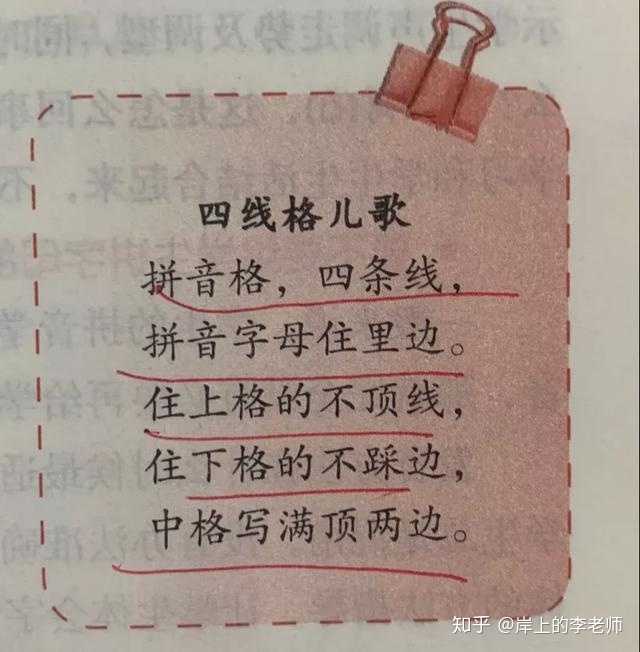 四线格儿歌
拼音格，四条线，
拼音字母住里边。
住上格的不顶线，
住下格的不踩边，
中格写满顶两边。
知乎 @岸上的李老师